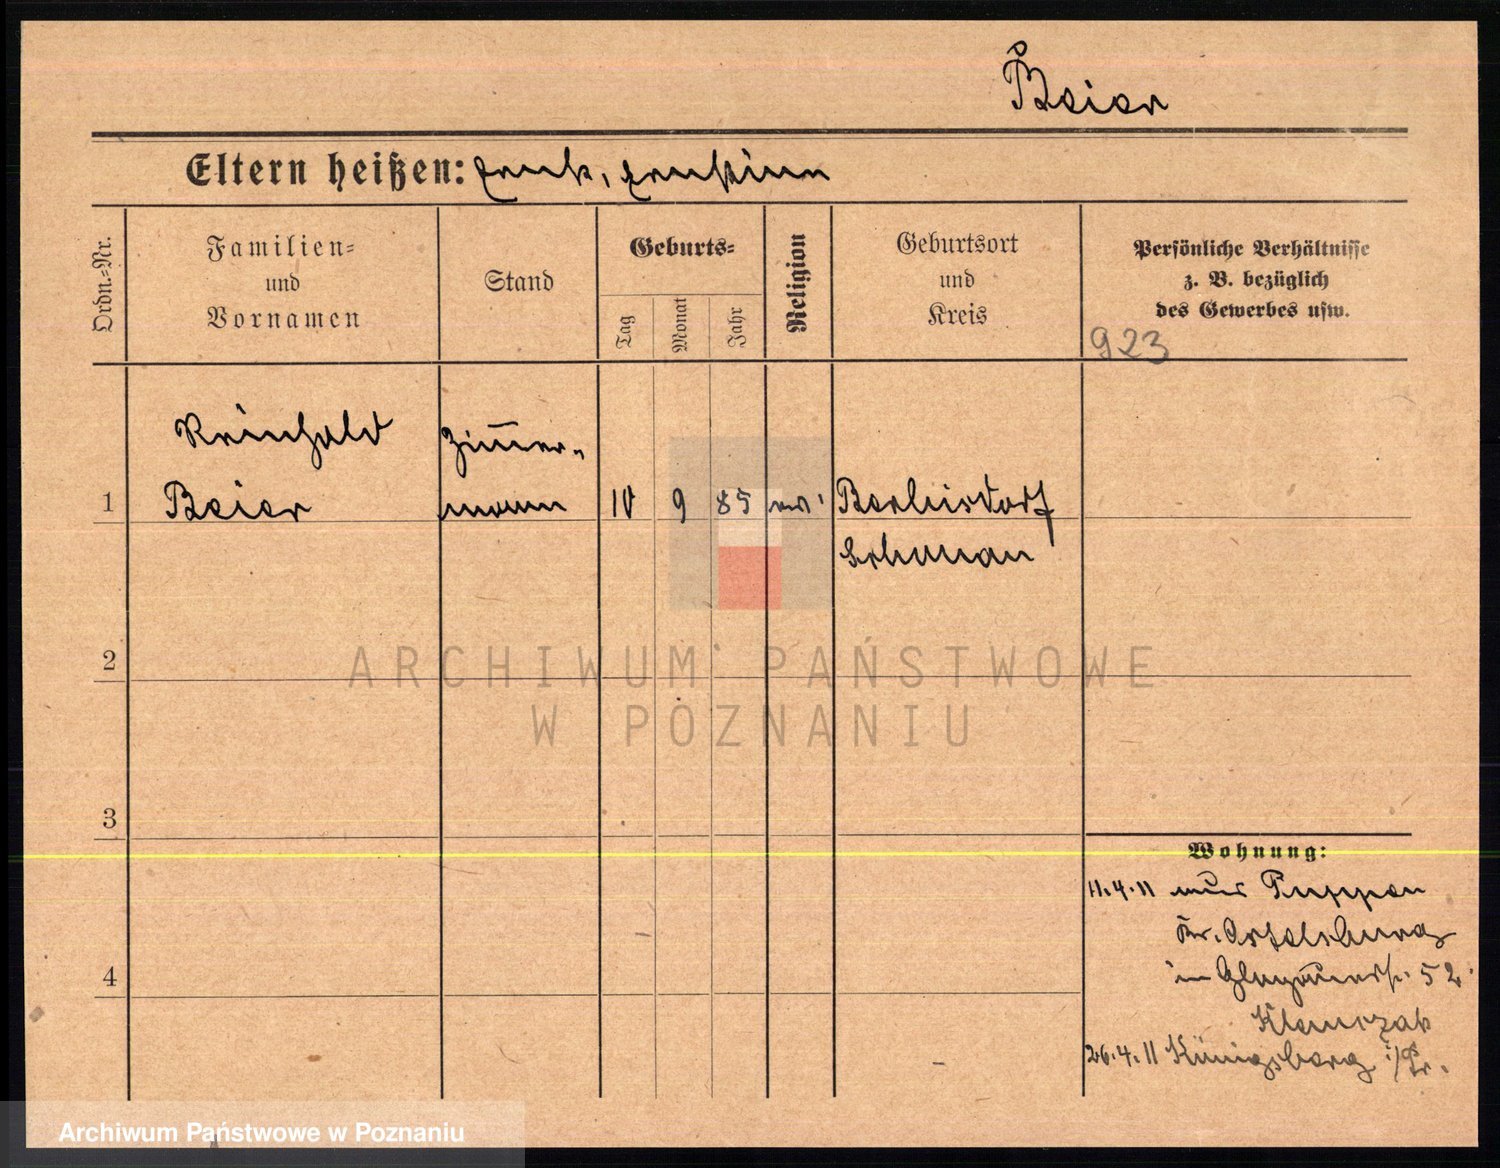 Beier
Eltern heißen: Ernst, Ernstine
Ordn.-Nr.
Familien-
und
Vornamen
Stand
Geburts-
Tag
Monat
Jahr
Religion
Geburtsort
und
Kreis
Persönliche Verhältnisse
z. B. bezüglich
des Gewerbes usw.
923
Reinhold
Beier
Zimmer-
mann
1
10
9
85
ev.
Berbisdorf
Schönau
2
ARCHIWUM PAŃSTWOWE
W POZNANIU
3
Wohnung:
11.4.11 aus Puppen
Kr. Ortelsburg
in 52
4
26.4.11 Königsberg i/Pr.
Archiwum Państwowe w Poznaniu